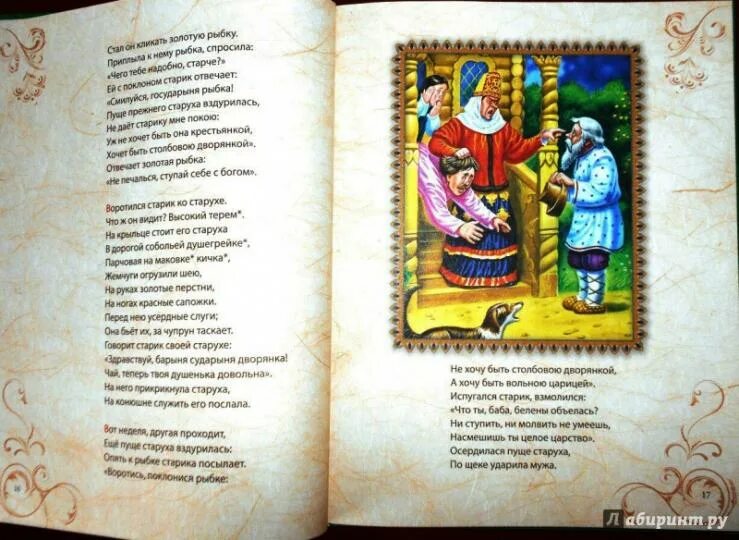 Стал он кликать золотую рыбку.
Приплыла к нему рыбка, спросила:
«Чего тебе надобно, старче?»
Ей с поклоном старик отвечает:
«Смилуйся, государыня рыбка!
Пуще прежнего старуха вздурилась,
Не даёт старику мне покою:
Уж не хочет быть она крестьянкой,
Хочет быть столбовою дворянкой».
Отвечает золотая рыбка:
«Не печалься, ступай себе с богом».

Воротился старик ко старухе.
Что ж он видит? Высокий терем*.
На крыльце стоит его старуха
В дорогой собольей душегрейке*,
Парчовая на маковке* кичка*,
Жемчуги огрузили шею,
На руках золотые перстни,
На ногах красные сапожки.
Перед нею усердные слуги;
Она бьёт их, за чупрун таскает.
Говорит старик своей старухе:
«Здравствуй, барыня сударыня дворянка!
Чай, теперь твоя душенька довольна».
На него прикрикнула старуха,
На конюшне служить его послала.

Вот неделя, другая проходит,
Ещё пуще старуха вздурилась:
Опять к рыбке старика посылает.
«Воротись, поклонися рыбке:
16

Не хочу быть столбовою дворянкой,
А хочу быть вольною царицей».
Испугался старик, взмолился:
«Что ты, баба, белены объелась?
Ни ступить, ни молвить не умеешь,
Насмешишь ты целое царство».
Осердилася пуще старуха,
По щеке ударила мужа.
17
Лабиринт.ру